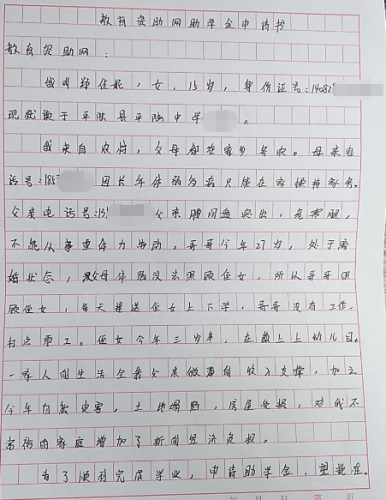 教育资助网助学金申请书
教育资助网：
我叫 佳妮，女，15岁，身份证号：14082
现就读于平陆县平陆中学 。
我来自农村，父母都在家乡务农。母亲电
话号：185 因长年体弱多病只能在家操持家务。
父亲电话号：15 父亲腰间盘突出，老寒腿，
不能从事重体力劳动。哥哥今年27岁，处于离
婚状态，父母体弱没法照顾侄女，所以哥哥照
顾侄女，每天接送侄女上下学，哥哥没有工作，
打点零工。侄女今年三岁半，在镇上上幼儿园。
一家人的生活全靠父亲微薄的收入支撑，加之
今年自然灾害，土地塌陷，房屋受损，对我不
富裕的家庭增加了新的经济负担。
为了顺利完成学业，申请助学金，望批准。
年 月 日 第 页